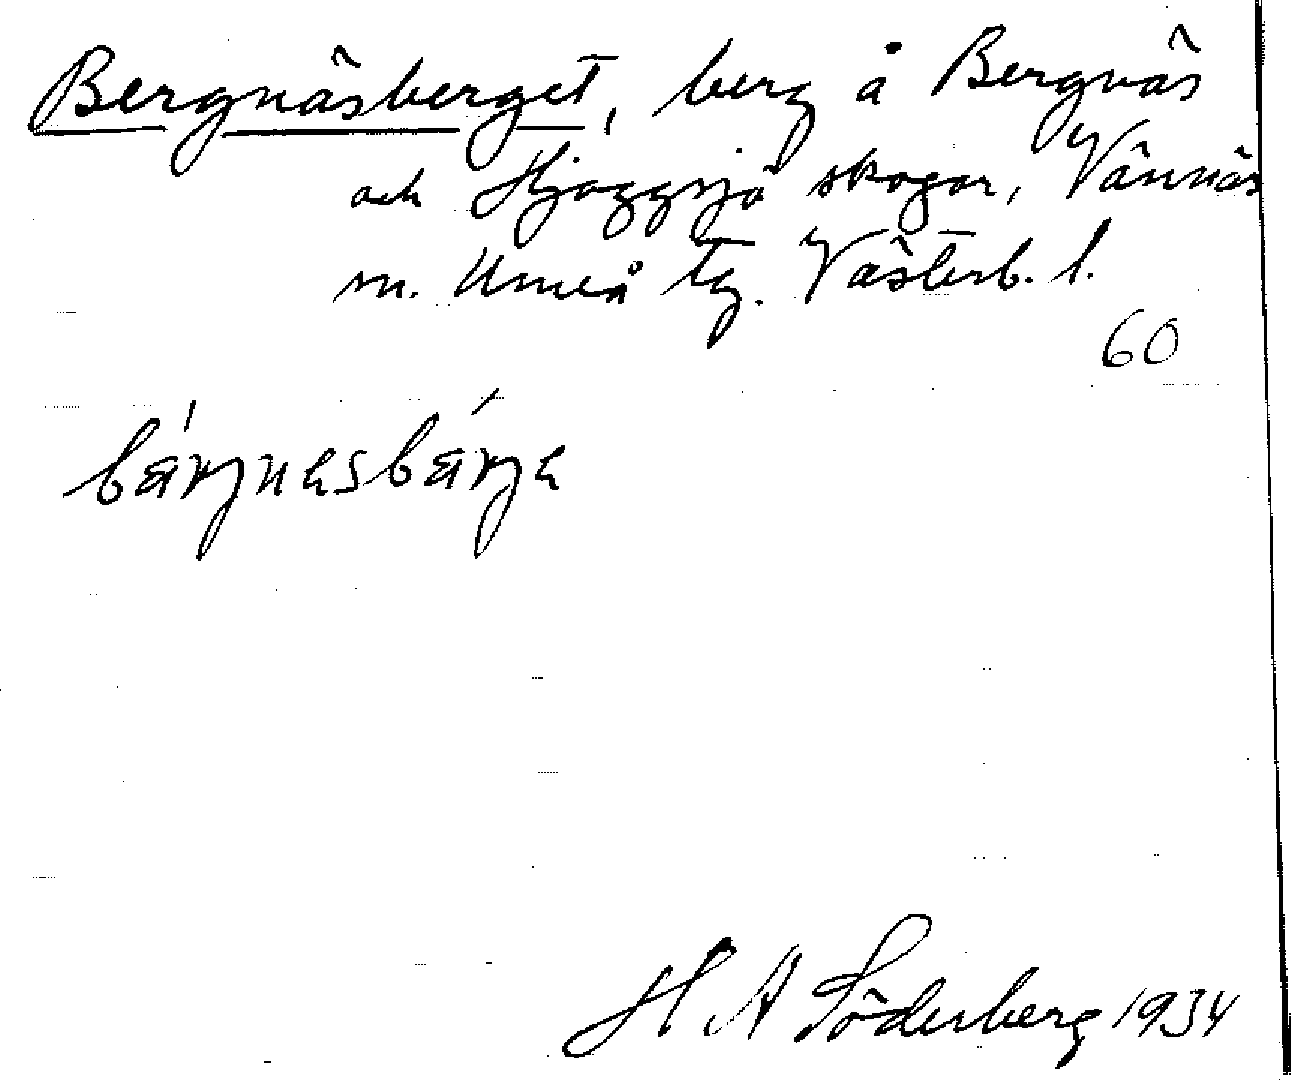 Bergnäsberget, berg å Bergnäs
och Hjoggsjö skogar, Vännäs
sn. Umeå tg. Västerb. l.
60
bärjnesbärje
H A Söderberg 1934